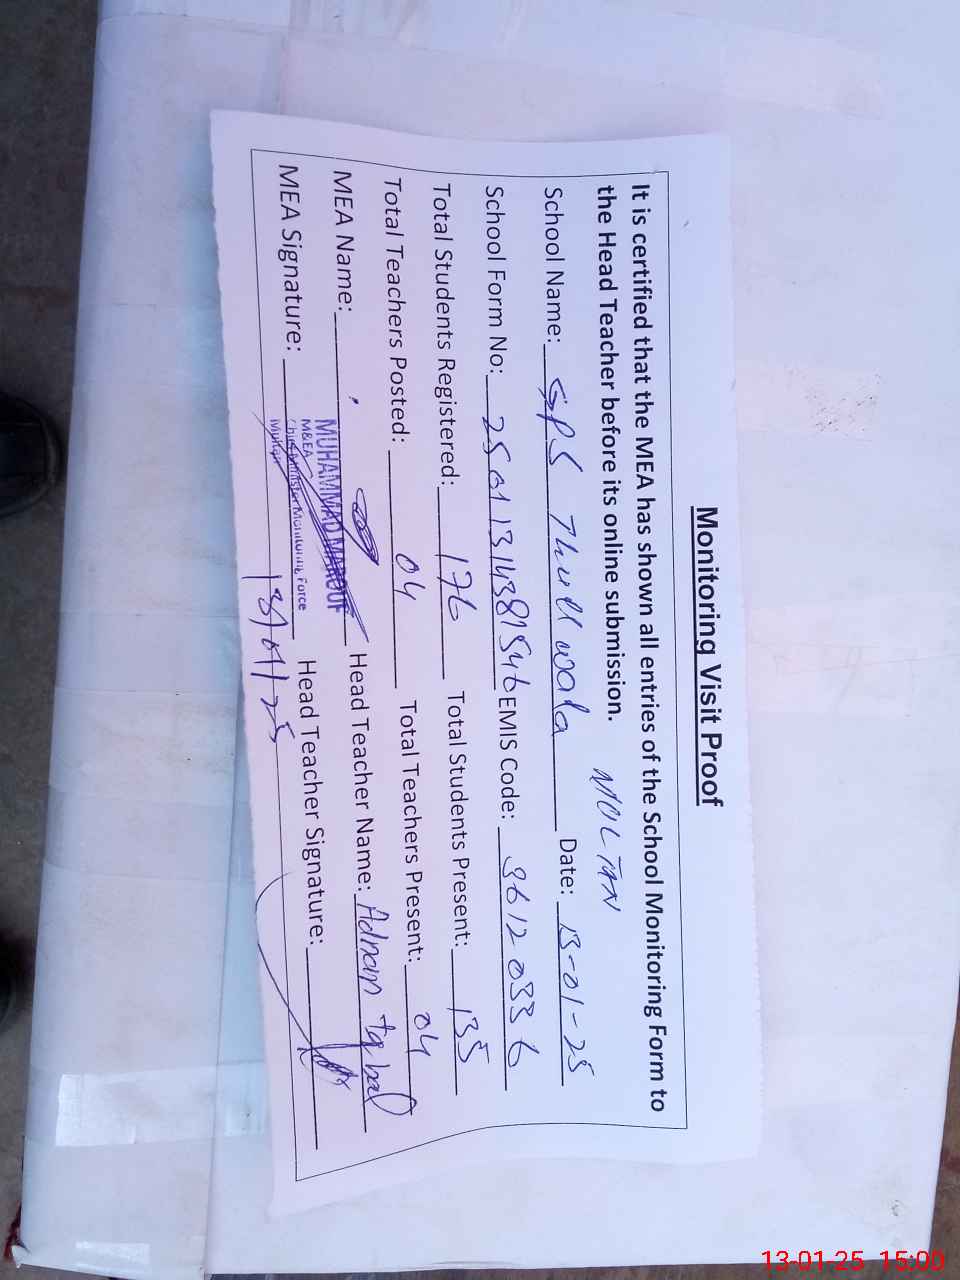 Monitoring Visit Proof
It is certified that the MEA has shown all entries of the School Monitoring Form to
the Head Teacher before its online submission. MULTAN
School Name: GPS Thull wala Date: 13-01-25
School Form No: 25011314381546 EMIS Code: 36120336
Total Students Registered: 176 Total Students Present: 135
Total Teachers Posted: 04 Total Teachers Present: 04
MEA Name: Head Teacher Name: Adnan Iqbal
MUHAMMAD MAROOF
M&EA
Chief Minister Monitoring Force
Multan
MEA Signature: Head Teacher Signature:
13/01/25
13-01-25 15:00